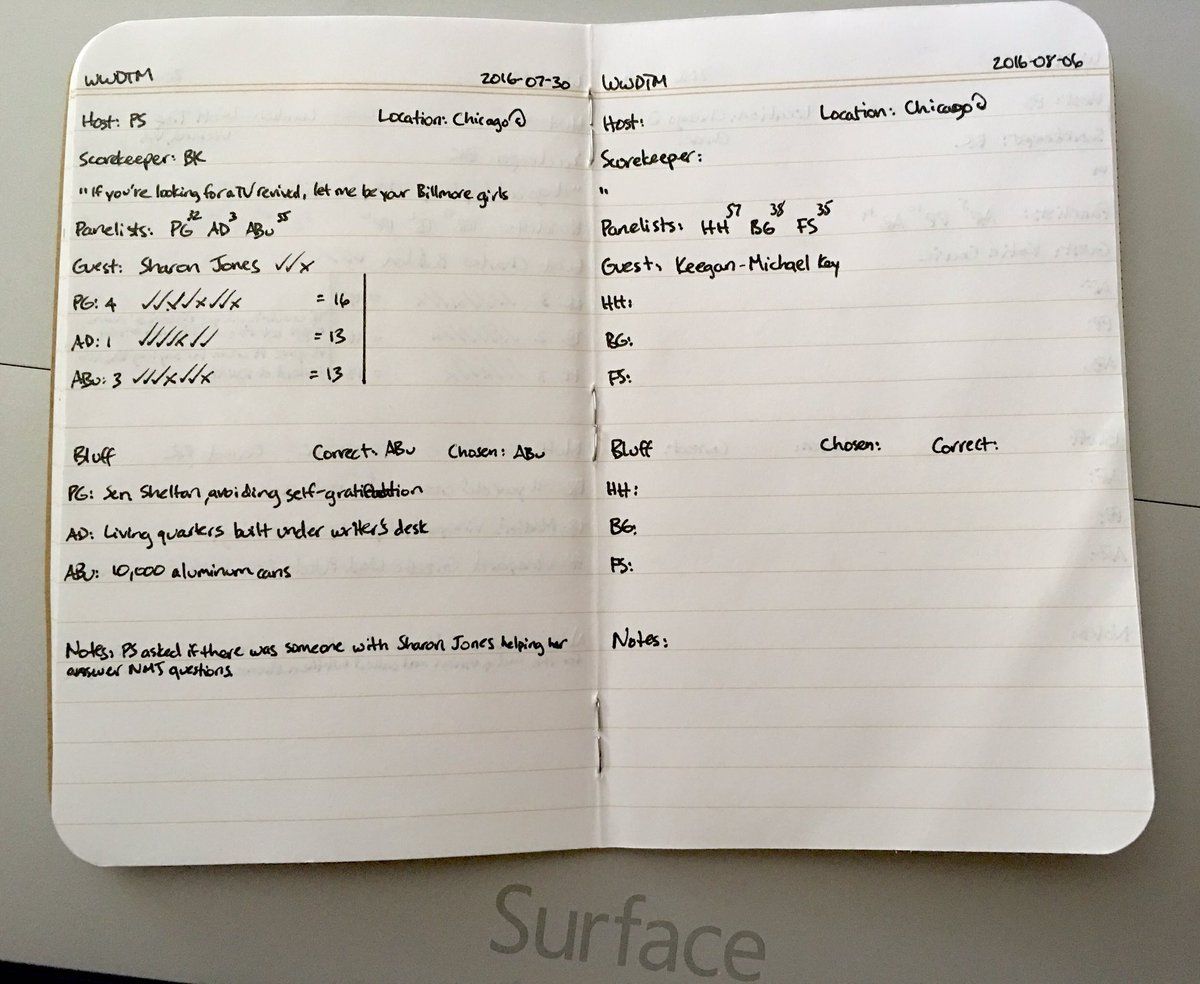 WWDTM 2016-07-30
Host: PS Location: Chicago
Scorekeeper: BK
"If you're looking for a TV revived, let me be your Billmore girls
Panelists: PG 32 AD 3 ABu 55
Guest: Sharon Jones ✓✓x
PG: 4 ✓✓✓✓x✓✓x = 16
AD: 1 = 13
ABu: 3 ✓✓✓x✓✓x = 13
Bluff Correct: ABu Chosen: ABu
PG: Jen Shelton, avoiding self-gratification
AD: Living quarters built under writer's desk
ABu: 10,000 aluminum cans
Notes: PS asked if there was someone with Sharon Jones helping her
answer NMJ questions.
WWDTM 2016-08-06
Host: Location: Chicago
Scorekeeper:
"
Panelists: HH 57 BG 38 FS 35
Guest: Keegan-Michael Key
HH:
BG:
FS:
Bluff Chosen: Correct:
HH:
BG:
FS:
Notes:
Surface